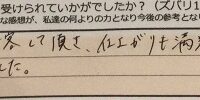 受けられていかがでしたか？（ズバリ1
な感想が、私達の何よりの力となり今後の参考とな
容して頂き、仕上がりも満
した。